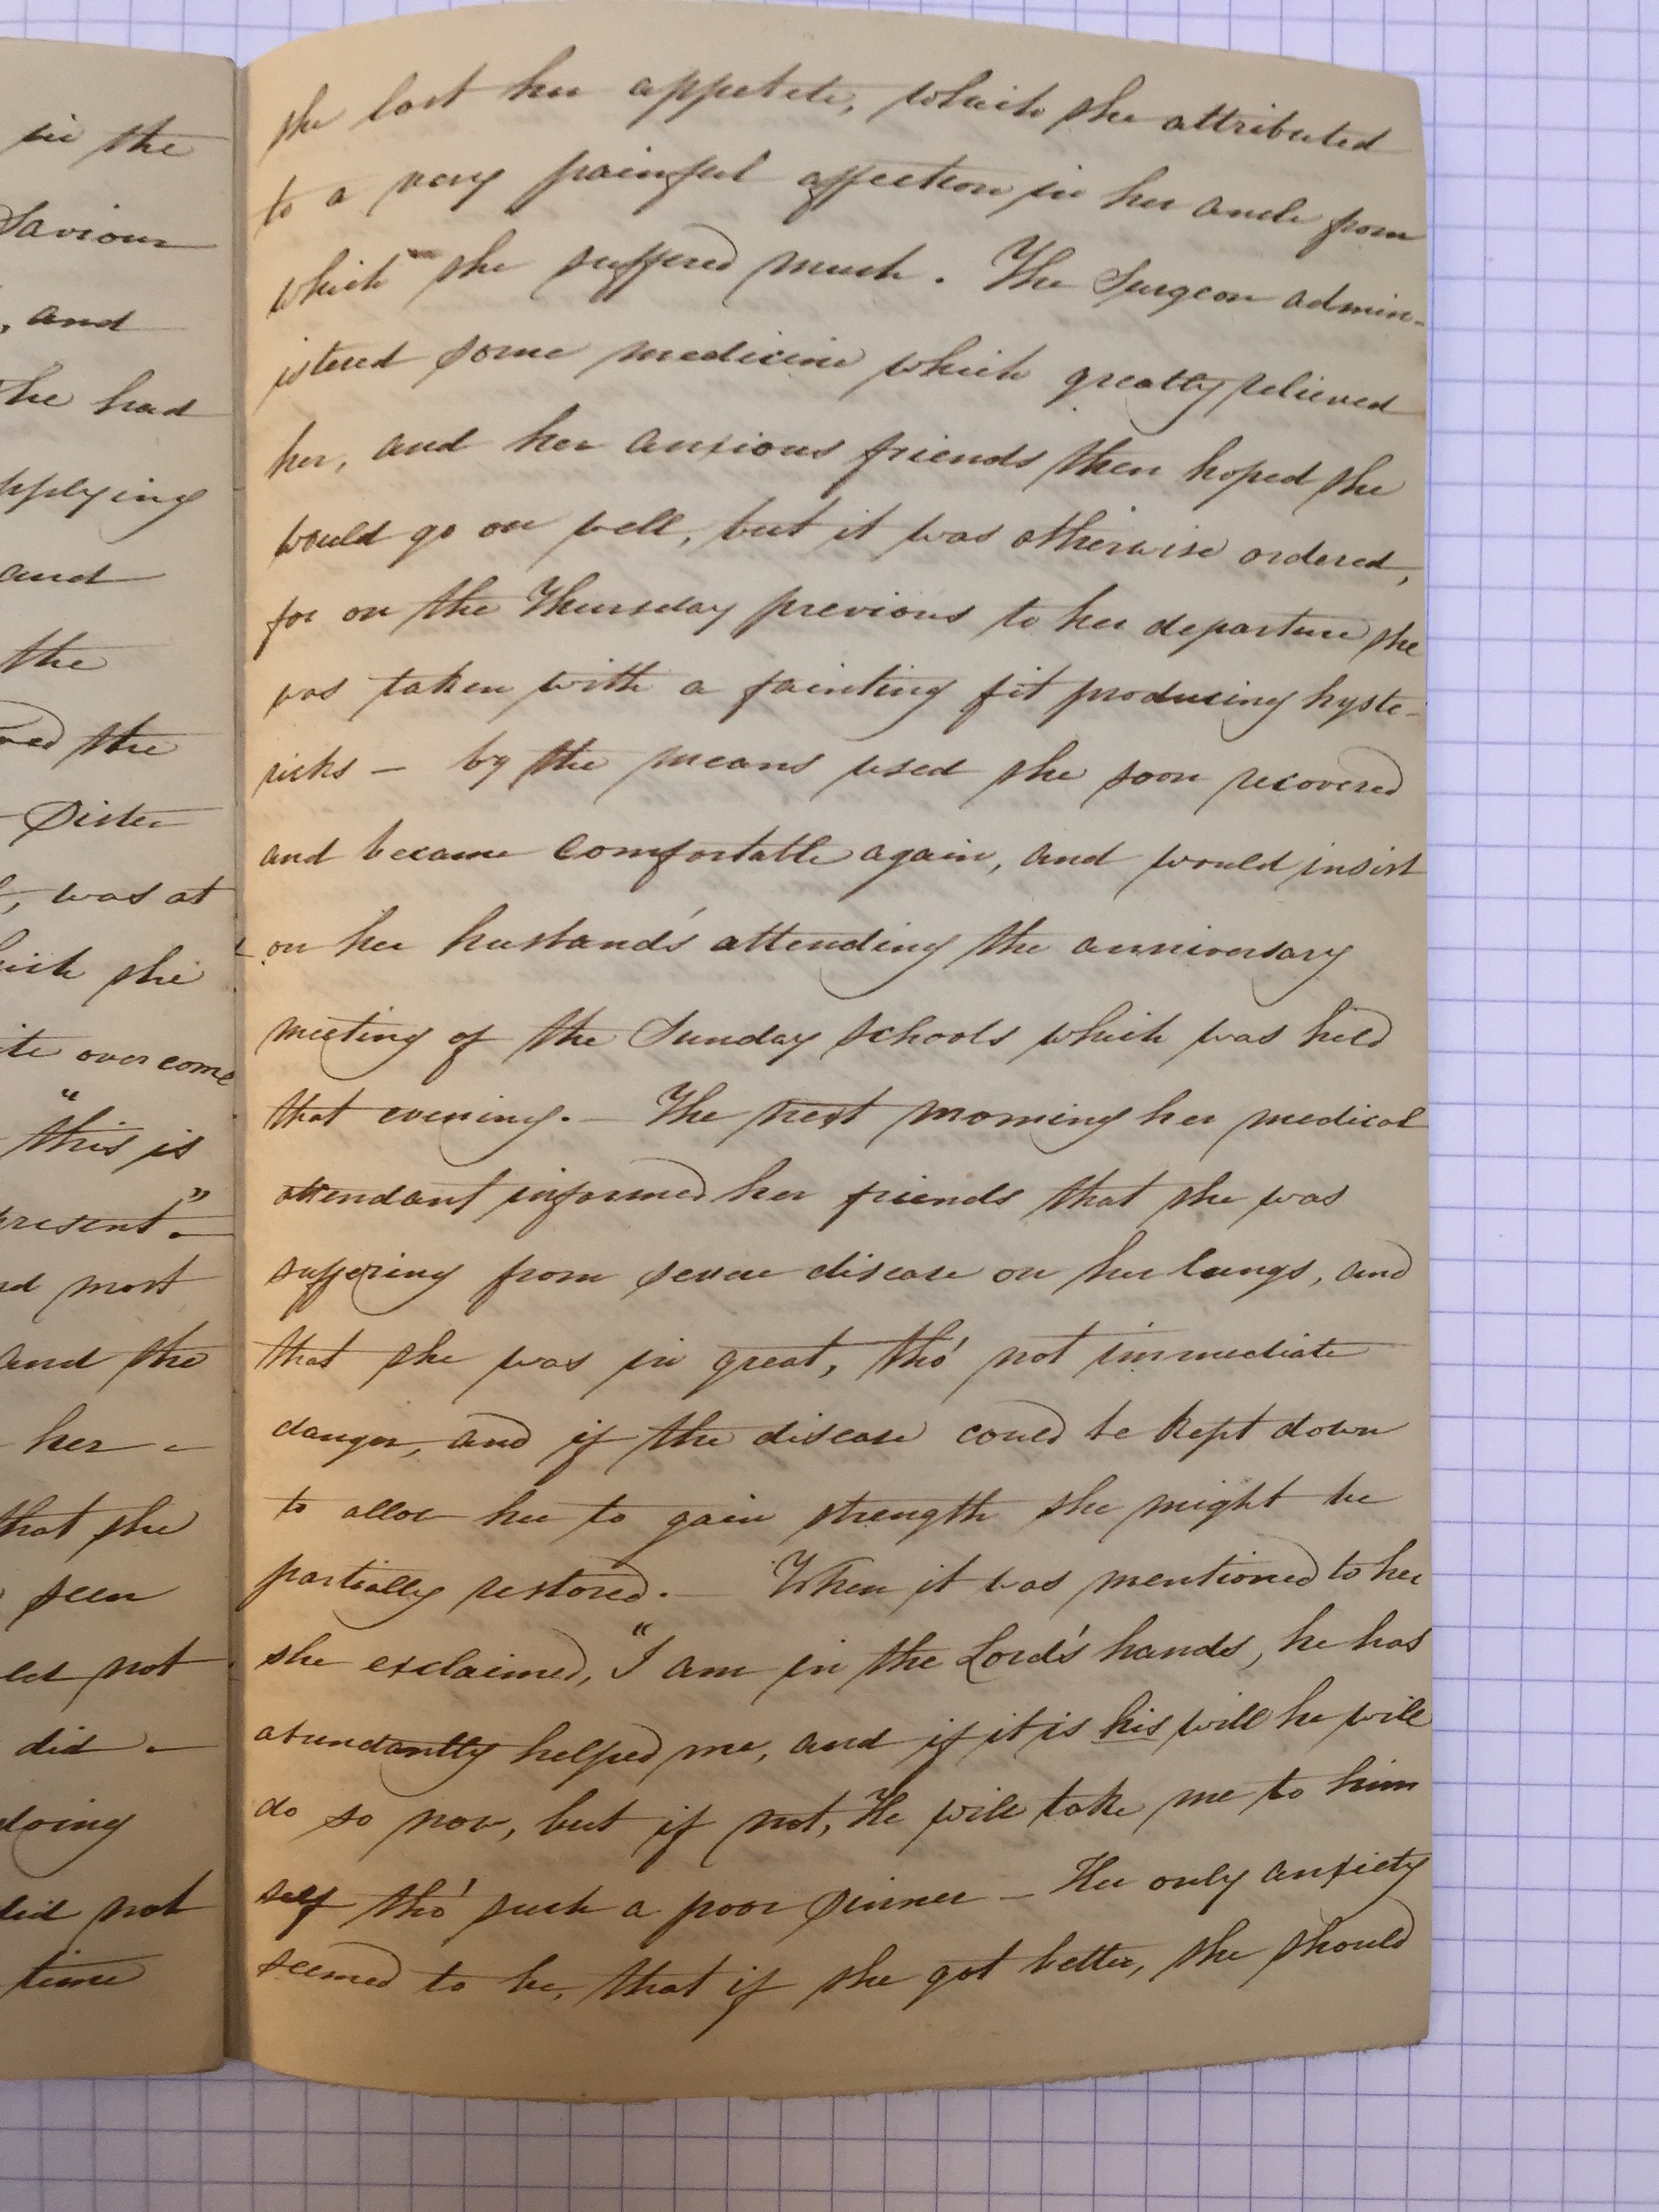 in the
Saviour
, and
he had
pplying
and
the
the
Sister
, was at
she
over come
"this is
present."
most
and the
her -
that she
seen
not
did -
doing
did not
time
she lost her appetite, which she attributed
to a very painful affection in her ancle from
which she suffered much. The Surgeon admin-
istered some medicine which greatly relieved
her, and her anxious friends then hoped she
would go on well, but it was otherwise ordered,
for on the Thursday previous to her departure she
was taken with a fainting fit producing hyste-
ricks — by the means used she soon recovered
and became comfortable again, and would insist
on her husband's attending the anniversary
meeting of the Sunday schools which was held
that evening. — The next morning her medical
attendant informed her friends that she was
suffering from severe disease on her lungs, and
that she was in great, tho' not immediate
danger, and if the disease could be kept down
to allow her to gain strength she might be
partially restored. — When it was mentioned to her
she exclaimed, "I am in the Lord's hands, he has
abundantly helped me, and if it is his will he will
do so now, but if not, He will take me to him
self tho' such a poor sinner — Her only anxiety
seemed to be, that if she got better, she should